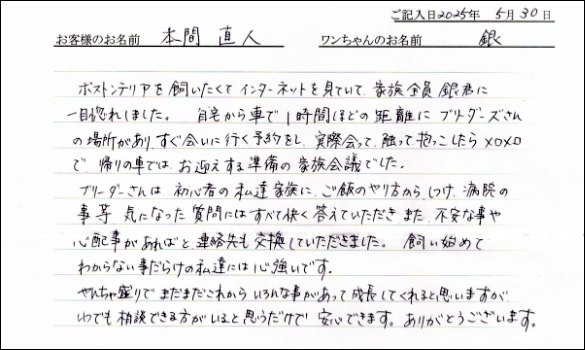 ご記入日2025年 5月30日
お客様のお名前 本間 直人 ワンちゃんのお名前 銀
ボストンテリアを飼いたくてインターネットを見ていて、家族全員 銀君に
一目惚れしました。 自宅から車で1時間ほどの距離にブリーダーズさん
の場所があり、すぐ会いに行く予約をし、実際会って、触って、抱っこしたらメロメロ
で、帰りの車では、お迎えする準備の家族会議でした。
ブリーダーさんは、初心者の私達家族に、ご飯のやり方から、しつけ、病院の
事等、気になった質問にはすべて快く答えていただき また、不安な事や
心配事があればと、連絡先も交換していただきました。 飼い始めて
わからない事だらけの私達には心強いです。
やんちゃ盛りで まだまだこれから いろんな事があって成長してくれると思いますが
いつでも相談できる方がいると思うだけで 安心できます。ありがとうございます。